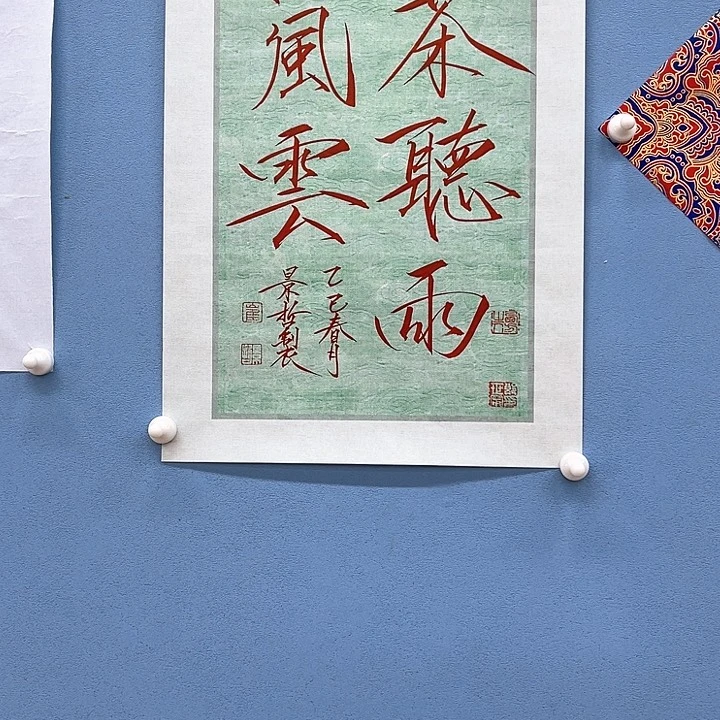 茶聽雨
風雲
乙巳春月
景哲製